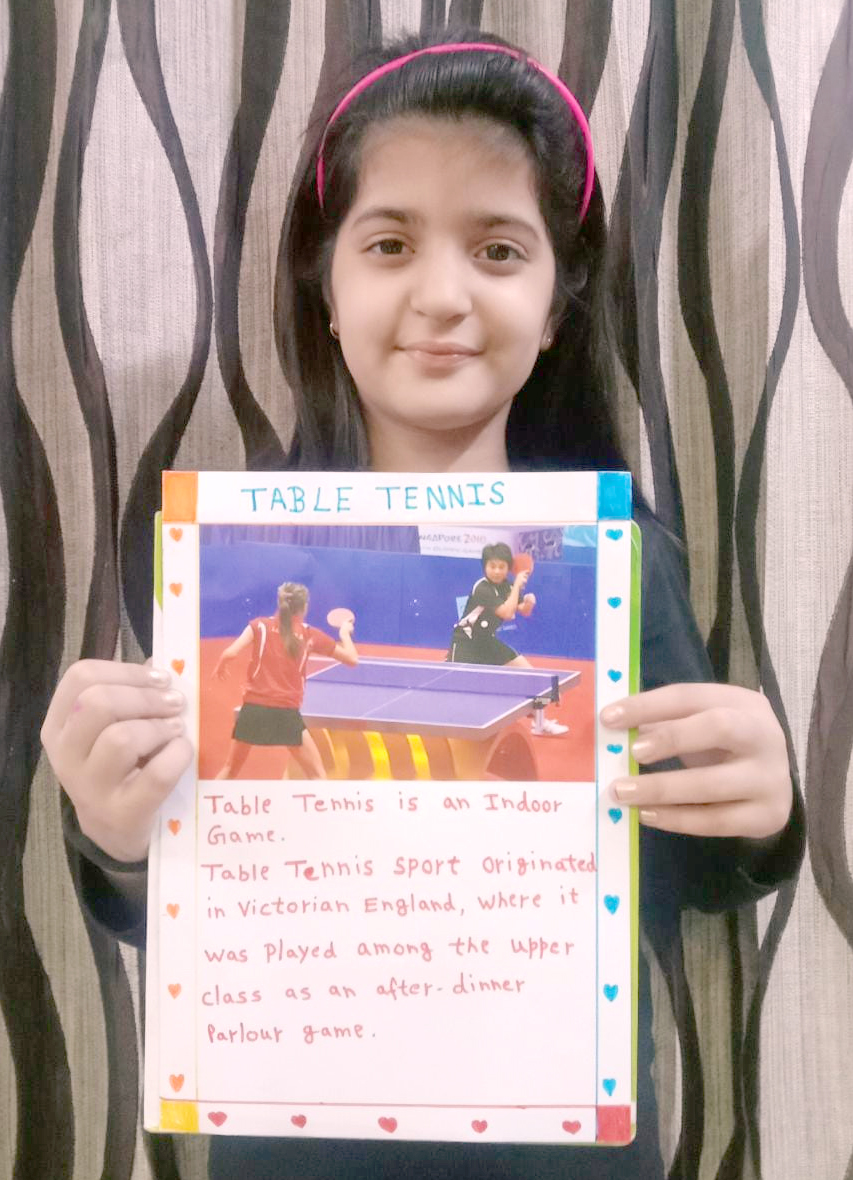 TABLE TENNIS
SINGAPORE 2010
Table Tennis is an Indoor
Game.
Table Tennis sport originated
in Victorian England, where it
was played among the upper
class as an after-dinner
Parlour game.